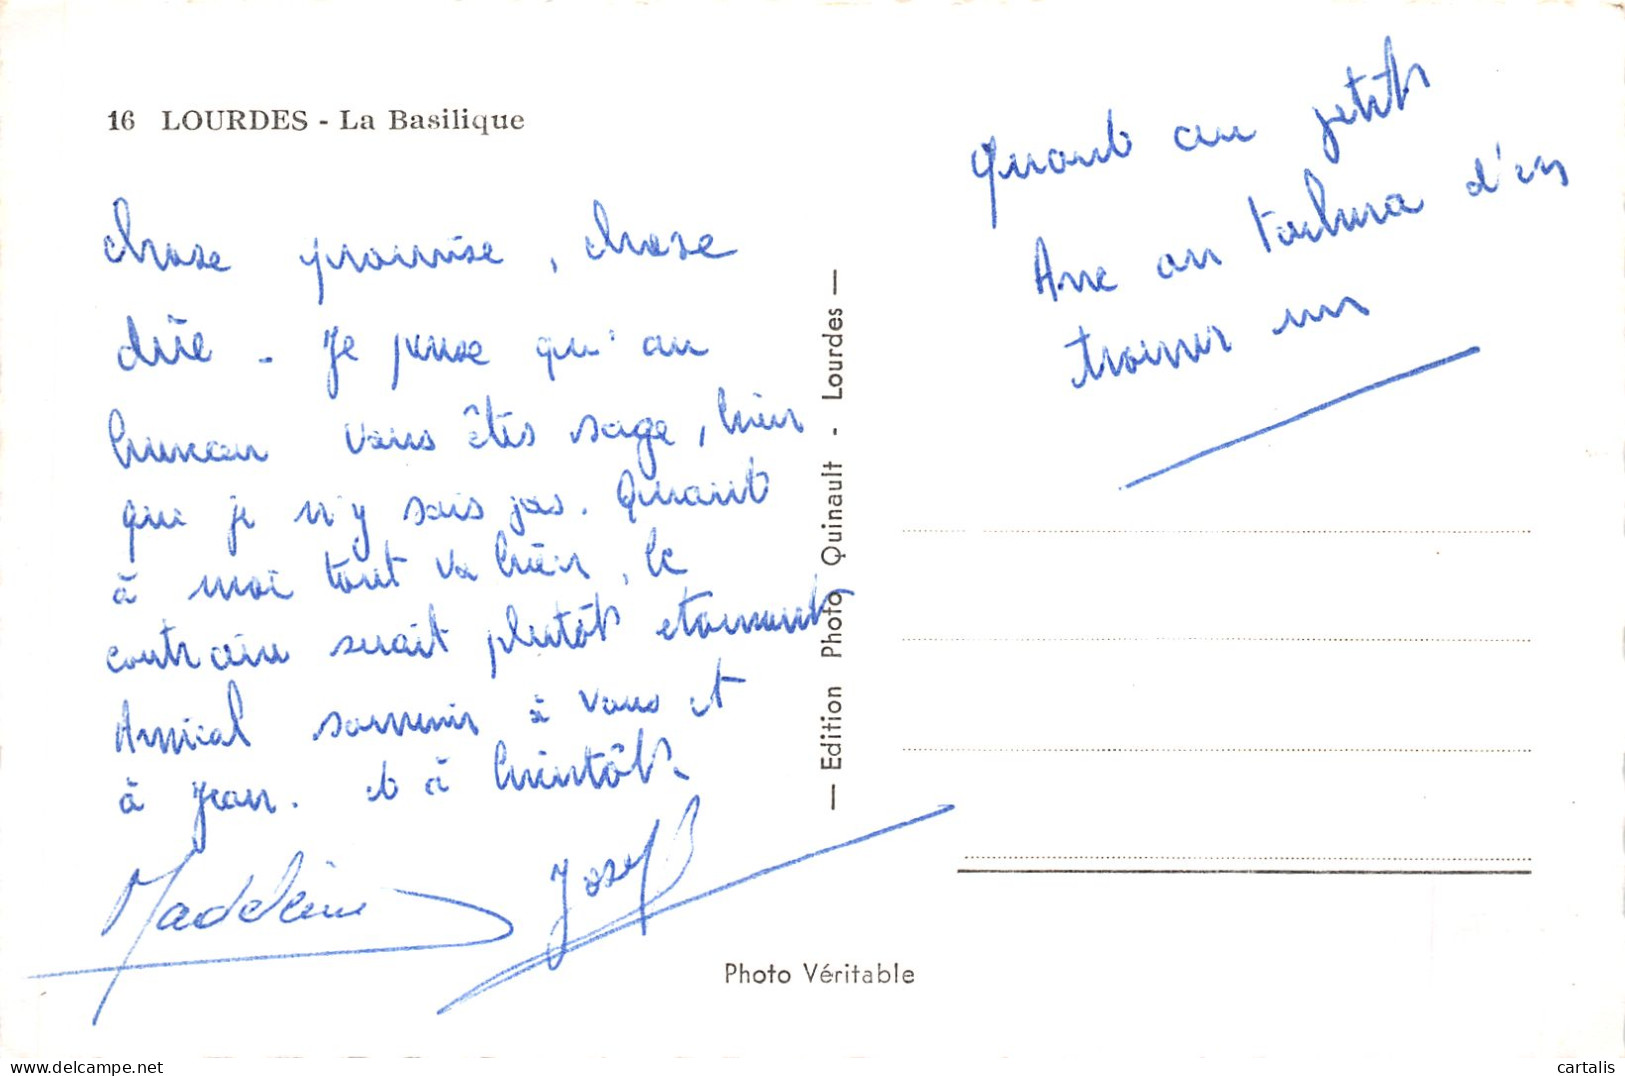 16 LOURDES - La Basilique
chose promise, chose
dûe - Je pense qu'au
bureau vous êtes sage, bien
que je n'y sois pas. Quant
à moi tout va bien, le
contraire serait plutôt etonnant
Amical souvenir à vous et
à Jean. et à bientôt.
Madeleine Josef
Quant au petit
Ane on tachera d'en
trouver un
— Edition Photo Quinault - Lourdes —
Photo Véritable
cartalis